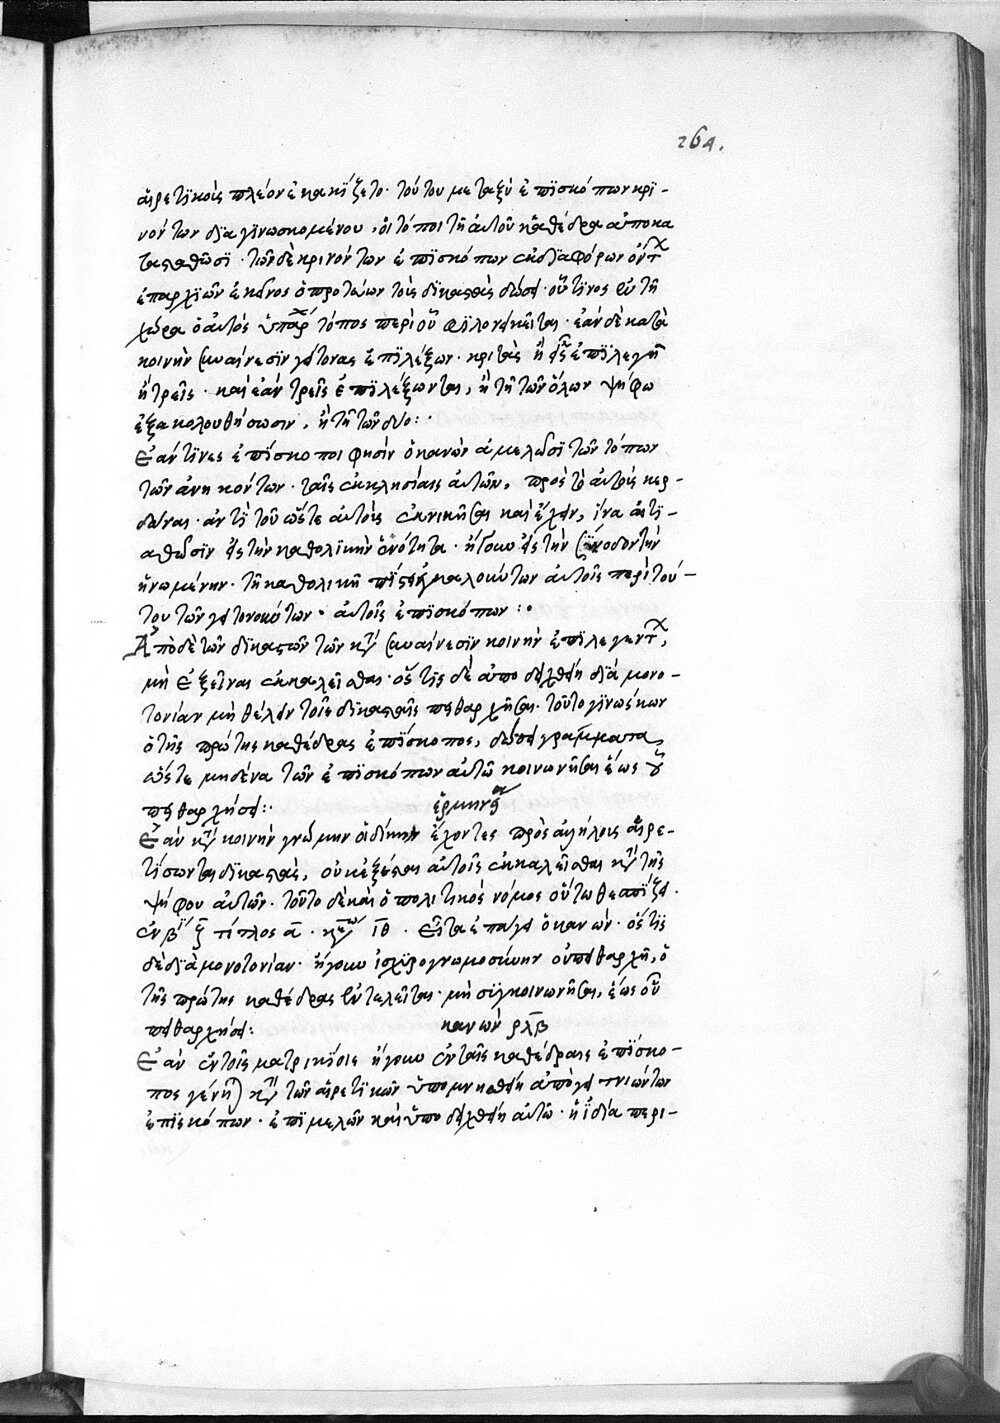 264.
αἱρετικοὶς πλέον ἐκακίζετο· τούτου μεταξὺ ἐπϊσκόπων κρϊ-
νόντων δϊαγϊνωσκομένου, οἱ τόποι τῆ αὐτοῦ καθέδρα ἀποκα
ταςαθῶσϊ· τῶν δὲ κρινόντων ἐπϊσκόπων ἐκ δϊαφόρων ὄντ
ἐπαρχϊῶν ἐκεῖνος ὁ προτείων τοὺς δϊκαςὰς δώσει· οὗτϊνος ἐν τῆ
χώρα ὁ αὐτὸς ὑπάρ τόπος περὶ οὗ φϊλονεικεῖται· ἐὰν δὲ κατὰ
κοινὴν συναίνεσϊν γείτονας ἐπϊλέξων· κριτὰς ἢ εἷς ἐπϊλεγῆ
ἢ τρεῖς· καὶ ἐὰν τρεῖς ἐπϊλέξωνται, ἢ τῆ τῶν ὅλων ψήφω
ἐξακολουθήσωσιν, ἢ τῆ τῶν δύο:·
Ἐάν τϊνες ἐπϊσκοποι φησὶν ὁ κανὼν ἀμελῶσϊ τῶν τόπων
τῶν ἀνηκόντων· ταῖς ἐκκλησίαις αὐτῶν, πρὸς τὸ αὐτοὺς κερ-
δάναι· ἀντὶ τοῦ ὥςτε αὐτοὺς ἐκνικῆσαι καὶ ἕλκειν, ἵνα αἰτϊ-
αθῶσϊν εἰς τὴν καθολϊκὴν ἑνότητα· ἤγουν εἰς τὴν σύνοδον τὴν
ἡνωμένην· τῆ καθολικῆ πίςει ἐγκαλούντων αὐτοῖς περὶ τού-
του τῶν γειτονούντων· αὐτοῖς ἐπϊσκόπων:·
Ἀπὸ δὲ τῶν δϊκαςῶν τῶν κατὰ συναίνεσϊν κοινὴν ἐπϊλεγέντ,
μὴ ἐξεῖναι ἐκκαλεῖσθαι· ὅςτις δὲ ἀποδειχθείη δϊὰ μονο-
τονίαν μὴ θέλειν τοῖς δϊκαςαῖς πειθαρχῆσαι· τοῦτο γϊνώσκων
ὁ τῆς πρώτης καθέδρας ἐπϊσκοπος, δώσει γράμματα,
ὥςτε μηδένα τῶν ἐπϊσκόπων αὐτῶ κοινωνῆσαι ἕως οὗ
πειθαρχήσει:· ἑρμηνεία
Ἐὰν κατὰ κοινὴν γνώμην οἱ δίκην ἔχοντες πρὸς ἀλλήλοις αἱρε-
τίσωνται δϊκαςὰς, οὐκ ἐξέςαι αὐτοῖς ἐκκαλεῖσθαι κατὰ τῆς
ψήφου αὐτῶν· τοῦτο δὲ καὶ ὁ πολϊτϊκὸς νόμος οὕτω θεσπϊζει·
ἐν βϊ ζ τίτλος α· κεφ ιθ· Εἶτα ἐπάγει ὁ κανών· ὅςτις
δὲ δϊὰ μονοτονίαν· ἤγουν ἰσχϋρογνωμοσύνην οὐ πειθαρχῆ, ὁ
τῆς πρώτης καθέδρας ἐντελεῖται· μὴ συγκοινωνῆσαι, ἕως οὗ
πειθαρχήσει: κανὼν ρλβ
Ἐὰν ἐν τοῖς ματρικϊοις ἤγουν ἐν ταῖς καθέδραις ἐπϊσκο-
πος γένη) κατὰ τῶν αἱρετϊκῶν ὑπομνησθείη ἀπὸ γειτνιώντων
ἐπϊσκόπων· ἐπϊμελῶν καὶ ὑποδειχθείη αὐτῶ· ἡ ἰδία περι-